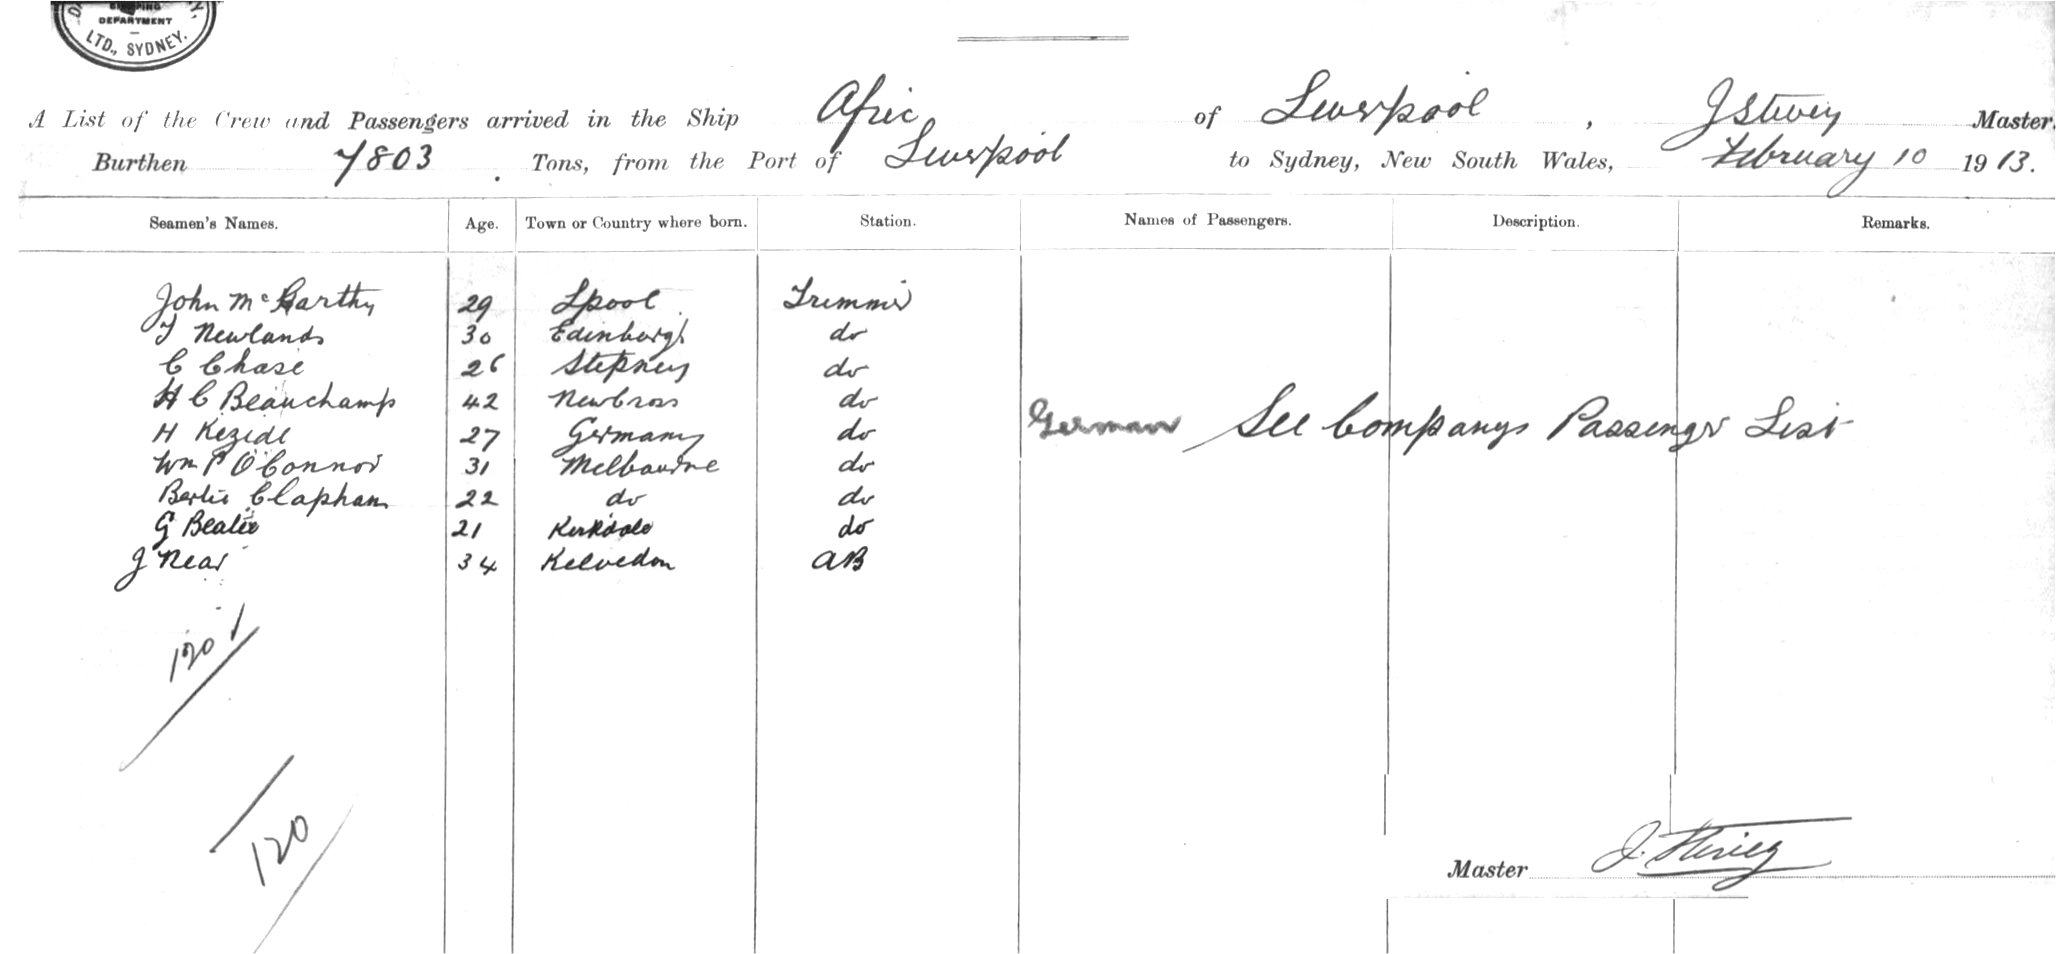 SHIPPING
DEPARTMENT
LTD., SYDNEY.
A List of the Crew and Passengers arrived in the Ship Afric of Liverpool, J Stivey Master.
Burthen 7803 Tons, from the Port of Liverpool to Sydney, New South Wales, February 10 1913.
Seamen's Names. Age. Town or Country where born. Station. Names of Passengers. Description. Remarks.
John McCarthy 29 Lpool Trimmer
T Newlands 30 Edinburgh do
C Chase 26 Stepney do
H C Beauchamp 42 New Cross do
H 27 Germany do German See Companys Passenger List
Wm P O'Connor 31 Melbourne do
Bertie Clapham 22 do do
G Beatie 21 Kirkdale do
J Near 34 Kelvedon AB
120
120
Master J. Stivey